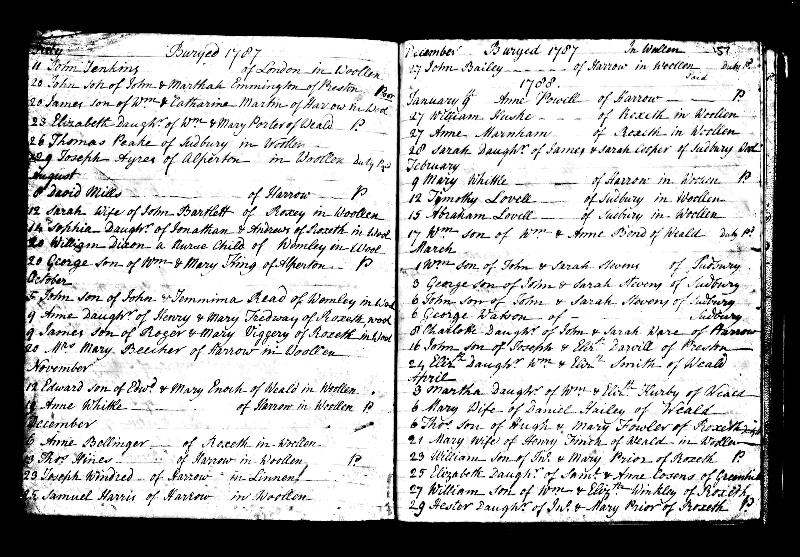 July Buryed 1787
11 John Jenkins of London in Woollen
20 John son of John & Marthah Ennington of Preston Poor
20 James son of Wm & Catharina Martin of Harrow in Wool
23 Elizabeth Daughr of Wm & Mary Porter of Weald P
26 Thomas Peake of Sudbury in Woollen
29 Joseph Ayres of Alperton in Woollen Duty Pd
August
8 David Mills of Harrow P
12 Sarah Wife of John Bartlett of Roxey in Woollen
14 Sophia Daughr of Jonathan & Andrews of Roxeth in Wool
20 William Dixon a Nurse Child of Wemley in Wool
20 George son of Wm & Mary King of Alperton P
October
5 John son of John & Jemmima Read of Wemley in Wool
9 Anne Daughr of Henry & Mary Tredway of Roxeth wool
9 James son of Roger & Mary Viggery of Roxeth in Wool
20 Mrs Mary Beecher of Harrow in Woollen
November
12 Edward son of Edwd & Mary Enoch of Weald in Woollen
Anne Whitle of Harrow in Woollen P
December
6 Anne Bollinger of Roxeth in Woollen
Thos Hines of Harrow in Woollen P
23 Joseph Windred of Harrow in Linnen
25 Samuel Harris of Harrow in Woollen
December Buryed 1787 In Wollen 51
17 John Bailey of Harrow in Woollen Duty P
1788 Paid
January 9 Anne Powell of Harrow P
27 William Huske of Roxeth in Woollen
27 Anne Marnham of Roxeth in Woollen
28 Sarah Daughr of James & Sarah Cosper of Sudbury Wool
February
9 Mary Whitle of Harrow in Woolen P
12 Tymothy Lovell of Sudbury in Woollen
15 Abraham Lovell of Sudbury in Woollen
17 Wm son of Wm & Anne Bond of Weald Duty Pd
March
1 Wm son of John & Sarah Stevens of Sudbury
3 George son of John & Sarah Stevens of Sudbury
6 John son of John & Sarah Stevens of Sudbury
6 George Watson of Sudbury
8 Charlott Daughr of John & Sarah Ware of Harrow
16 John son of Joseph & Elizth Darvill of Preston
24 Elizth Daughr Wm & Elizth Smith of Weald
April
3 Martha Daughr of Wm & Elizth Kurby of Weald
6 Mary Wife of Daniel Hailey of Weald
6 Thos son of Hugh & Mary Fowler of Roxeth
21 Mary Wife of Henry Finch of Weald in Woollen
23 William Son of Jno. & Mary Prior of Roxeth P
25 Elizabeth Daughr of Saml & Anne Cosens of Greenhill
27 William Son of Wm & Elizth Winkley of Roxeth
29 Hester Daughr of Jno. & Mary Prior of Roxeth P